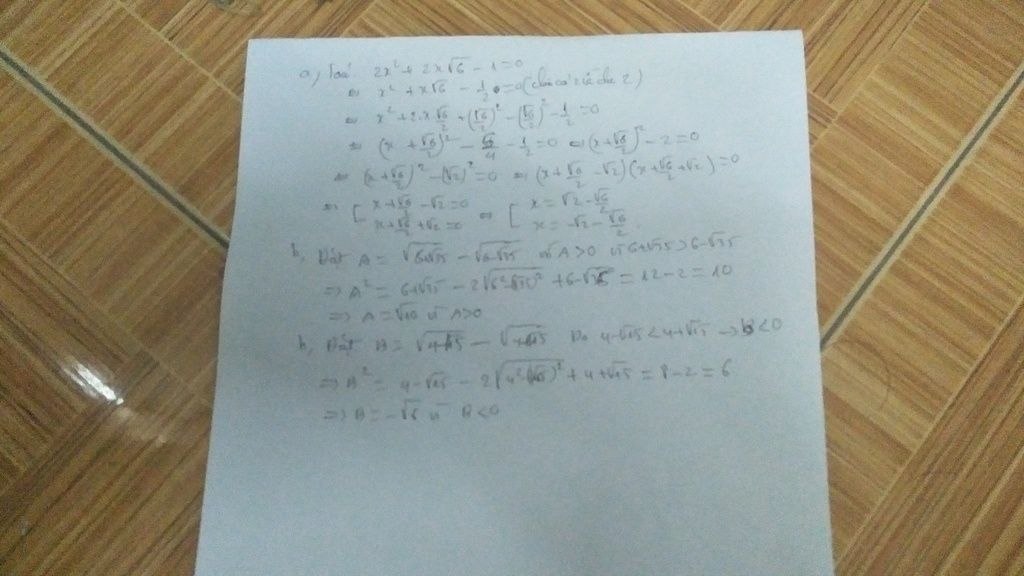 a, 2x² + 2x√6 - 1 = 0
⇔ x² + x√6 - 1/2 = 0 (chia cả 2 vế cho 2)
⇔ x² + 2.x √6/2 + (√6/2)² - (√6/2)² - 1/2 = 0
⇔ (x + √6/2)² - 6/4 - 1/2 = 0 ⇔ (x + √6/2)² - 2 = 0
⇔ (x + √6/2)² - (√2)² = 0 ⇔ (x + √6/2 - √2)(x + √6/2 + √2) = 0
⇔ [ x + √6/2 - √2 = 0 ⇔ [ x = √2 - √6/2
x + √6/2 + √2 = 0 x = -√2 - √6/2
b, Đặt A = √6+√35 - √6-√35 vì A > 0 vì 6+√35 > 6-√35
⇒ A² = 6+√35 - 2√6²-(√35)² + 6-√35 = 12 - 2 = 10
⇒ A = √10 vì A > 0
b, Đặt B = √4-√15 - √4+√15 Do 4-√15 < 4+√15 → B < 0
⇒ B² = 4-√15 - 2√4²-(√15)² + 4+√15 = 8 - 2 = 6
⇒ B = -√6 vì B < 0